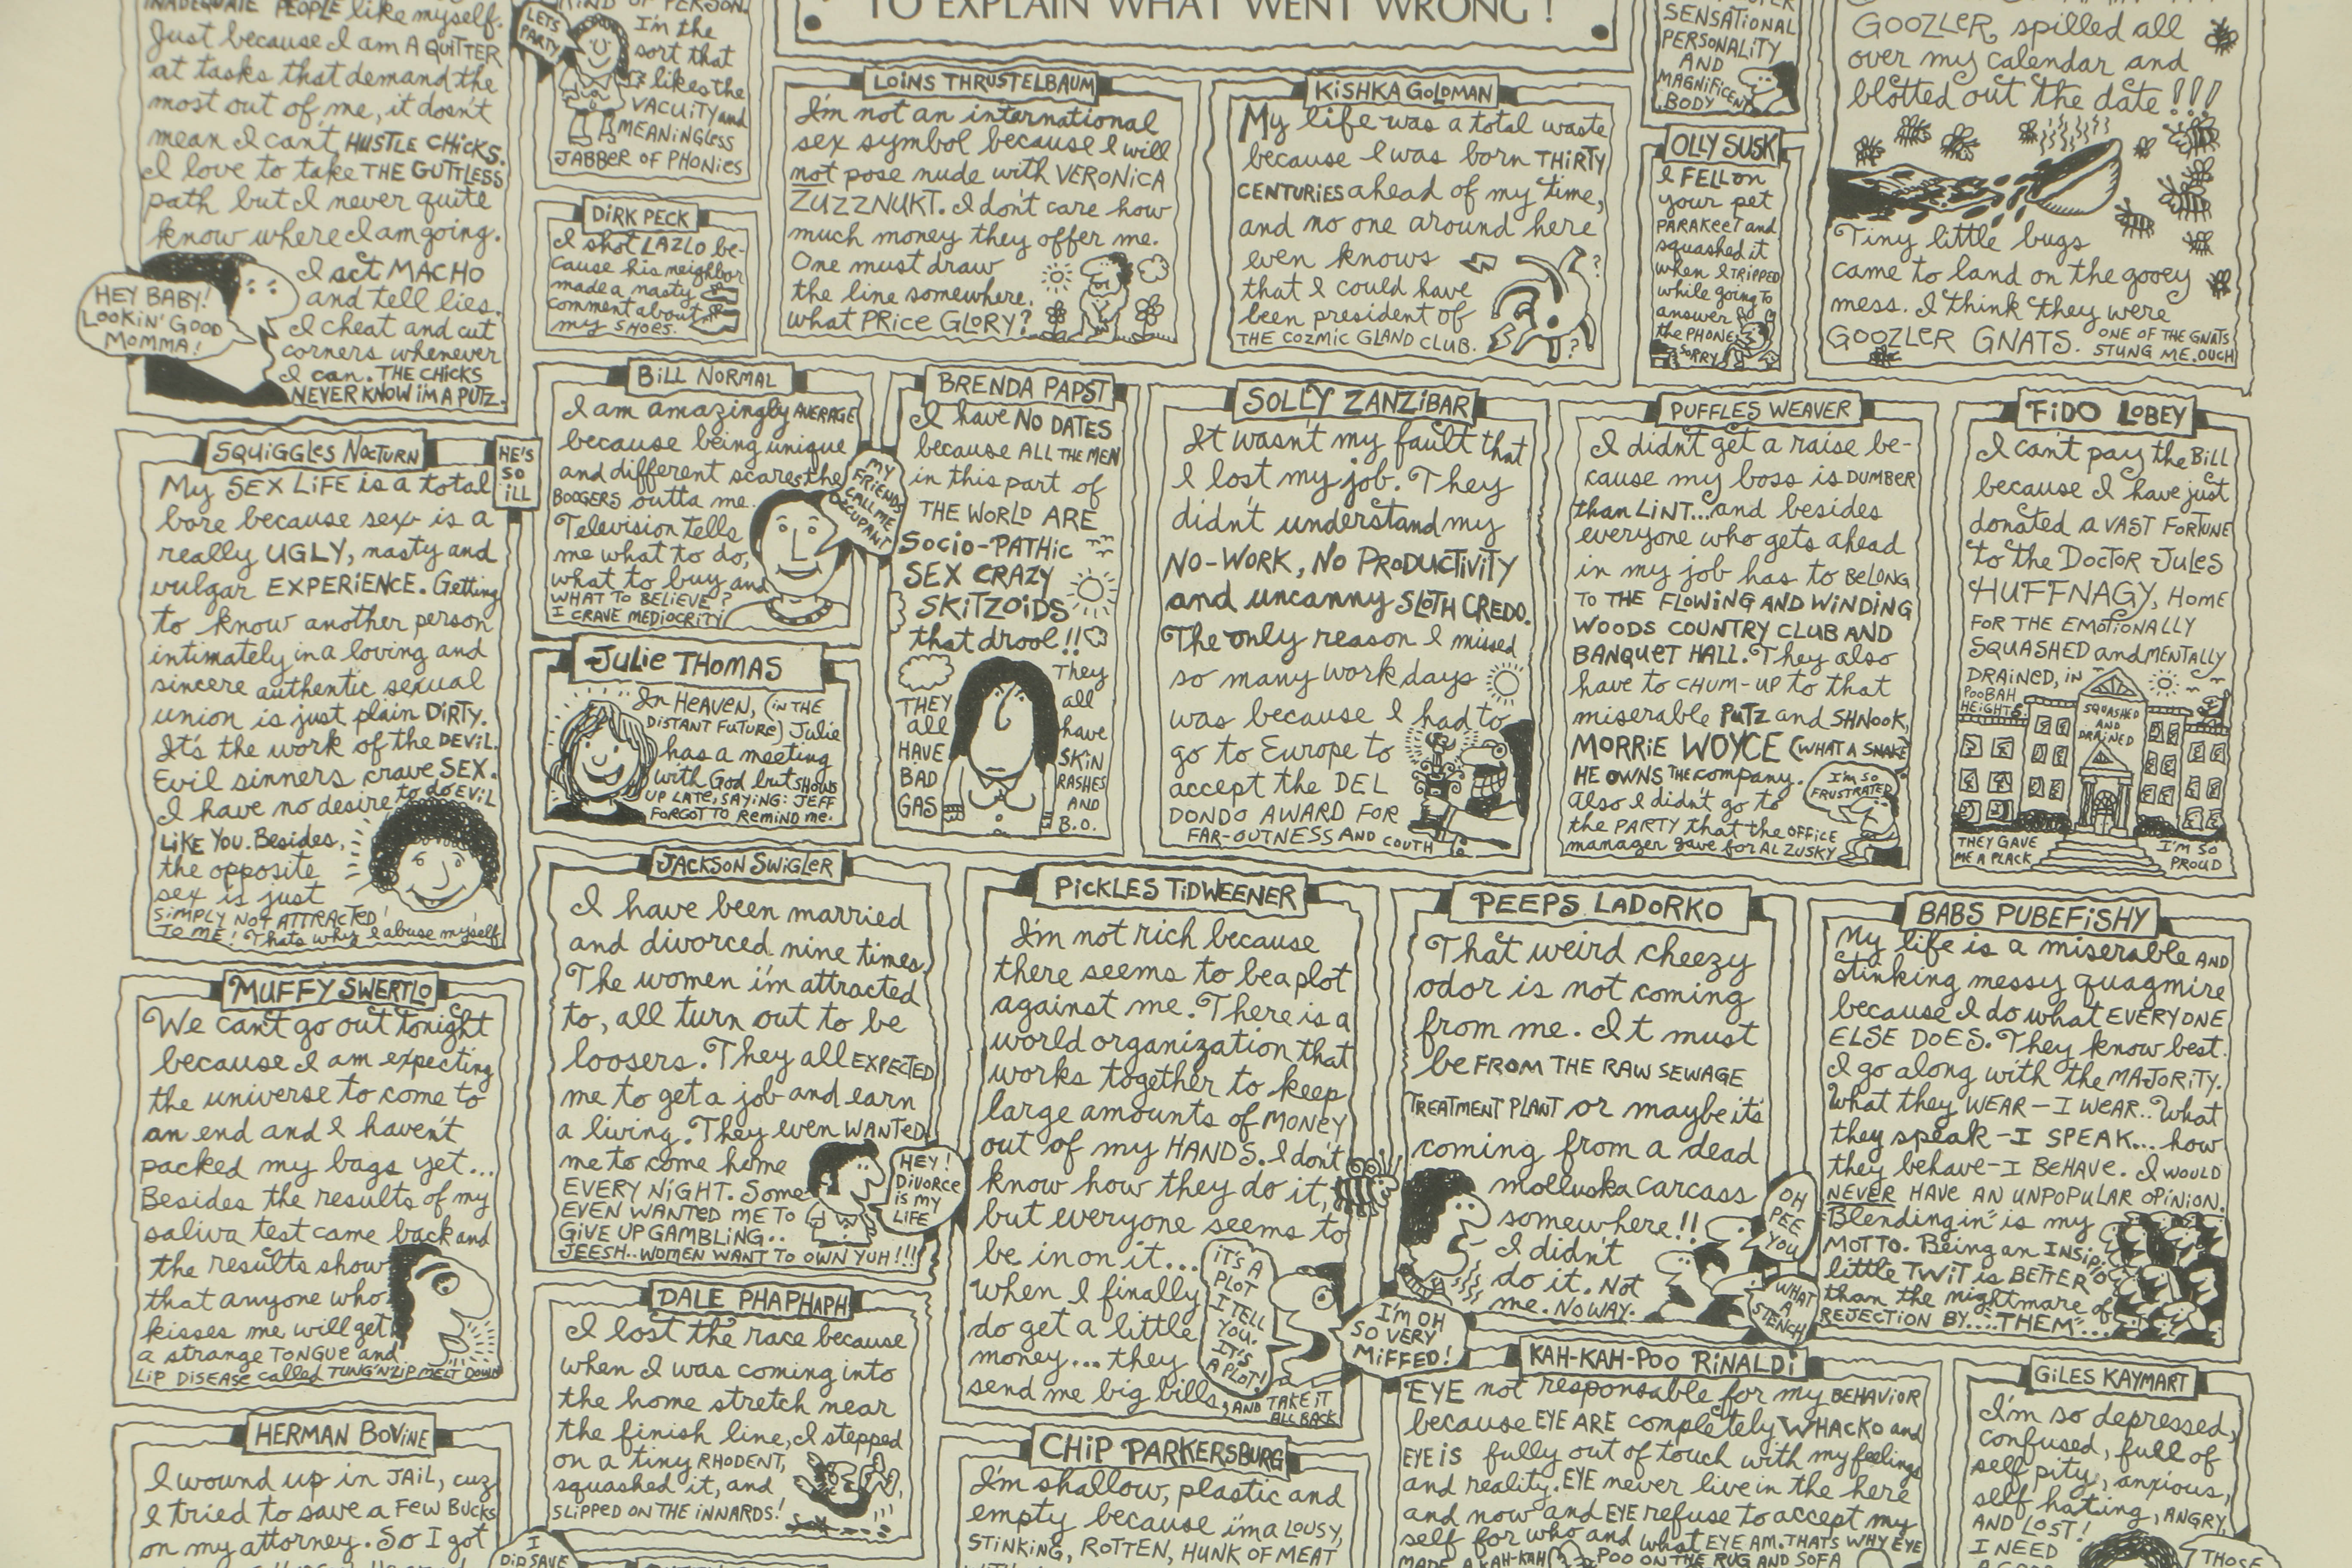 TO EXPLAIN WHAT WENT WRONG!
INADEQUATE PEOPLE like myself.
Just because I am A QUITTER
at tasks that demand the
most out of me, it doesn't
mean I can't HUSTLE CHICKS.
I love to take THE GUTTLESS
path but I never quite
know where I am going.
I act MACHO
and tell lies.
I cheat and cut
corners whenever
I can. THE CHICKS
NEVER KNOW I'M A PUTZ.
HEY BABY!
LOOKIN' GOOD
MOMMA!
KIND OF PERSON.
I'm the
sort that
likes the
VACUITY and
MEANINGLESS
JABBER OF PHONIES
LETS
PARTY
DIRK PECK
I shot LAZLO be-
cause his neighbor
made a nasty
comment about
my SHOES.
LOINS THRUSTELBAUM
I'm not an international
sex symbol because I will
not pose nude with VERONICA
ZUZZNUKT. I don't care how
much money they offer me.
One must draw
the line somewhere.
what PRICE GLORY?
KISHKA GOLDMAN
My life was a total waste
because I was born THIRTY
CENTURIES ahead of my time,
and no one around here
even knows
that I could have
been president of
THE COZMIC GLAND CLUB.
?
?
SENSATIONAL
PERSONALITY
AND
MAGNIFICENT
BODY
OLLY SUSK
I FELL on
your pet
PARAKEET and
squashed it
when I TRIPPED
while going to
answer
the PHONE
SORRY
GOOZLER spilled all
over my calendar and
blotted out the date!!!
Tiny little bugs
came to land on the gooey
mess. I think they were
GOOZLER GNATS. ONE OF THE GNATS
STUNG ME. OUCH
SQUIGGLES NOCTURN
My SEX LIFE is a total
bore because sex is a
really UGLY, nasty and
vulgar EXPERIENCE. Getting
to know another person
intimately in a loving and
sincere authentic sexual
union is just plain DIRTY.
It's the work of the DEVIL.
Evil sinners crave SEX.
I have no desire to do EVIL
LIKE YOU. Besides,
the opposite
sex is just
SIMPLY NOT ATTRACTED
TO ME! Thats why I abuse myself
HE'S
SO
ILL
BILL NORMAL
I am amazingly AVERAGE
because being unique
and different scares the
BOOGERS outta me.
Television tells
me what to do,
what to buy and
WHAT TO BELIEVE?
I CRAVE MEDIOCRITY
MY
FRIENDS
CALL ME
OCCUPANT
BRENDA PAPST
I have NO DATES
because ALL THE MEN
in this part of
THE WORLD ARE
SOCIO-PATHIC
SEX CRAZY
SKITZOIDS
that drool!!
THEY
ALL
HAVE
BAD
GAS
They
all
have
SKIN
RASHES
AND
B.O.
SOLLY ZANZIBAR
It wasn't my fault that
I lost my job. They
didn't understand my
NO-WORK, NO PRODUCTIVITY
and uncanny SLOTH CREDO.
The only reason I missed
so many work days
was because I had to
go to Europe to
accept the DEL
DONDO AWARD FOR
FAR-OUTNESS AND COUTH
PUFFLES WEAVER
I didn't get a raise be-
cause my boss is DUMBER
than LINT...and besides
everyone who gets ahead
in my job has to BELONG
TO THE FLOWING AND WINDING
WOODS COUNTRY CLUB AND
BANQUET HALL. They also
have to CHUM-UP to that
miserable PUTZ and SHNOOK,
MORRIE WOYCE (WHAT A SNAKE)
HE OWNS THE company.
Also I didn't go to
the PARTY that the OFFICE
manager gave for AL ZUSKY
I'M SO
FRUSTRATED
FIDO LOBEY
I can't pay the BILL
because I have just
donated a VAST FORTUNE
to the DOCTOR JULES
HUFFNAGY, HOME
FOR THE EMOTIONALLY
SQUASHED and MENTALLY
DRAINED, IN
POOBAH
HEIGHTS
SQUASHED
AND
DRAINED
THEY GAVE
ME A PLACK
I'M SO
PROUD
JULIE THOMAS
In HEAVEN, (IN THE
DISTANT FUTURE) Julie
has a meeting
with God but SHOWS
UP LATE, SAYING: JEFF
FORGOT TO REMIND ME.
MUFFY SWERTLO
We can't go out tonight
because I am expecting
the universe to come to
an end and I haven't
packed my bags yet...
Besides the results of my
saliva test came back and
the results show
that anyone who
kisses me will get
a strange TONGUE and
LIP DISEASE called TUNG'N'ZIP MELT DOWN
JACKSON SWIGLER
I have been married
and divorced nine times.
The women i'm attracted
to, all turn out to be
loosers. They all EXPECTED
me to get a job and earn
a living. They even WANTED
me to come home
EVERY NIGHT. Some
EVEN WANTED ME TO
GIVE UP GAMBLING..
JEESH..WOMEN WANT TO OWN YUH!!!
HEY!
DIVORCE
IS MY
LIFE
PICKLES TIDWEENER
I'm not rich because
there seems to be a plot
against me. There is a
world organization that
works together to keep
large amounts of MONEY
out of my HANDS. I don't
know how they do it,
but everyone seems to
be in on it...
when I finally
do get a little
money... they
send me big bills, AND TAKE IT
ALL BACK
IT'S A
PLOT
I TELL
YOU.
IT'S
A PLOT!
PEEPS LADORKO
That weird cheezy
odor is not coming
from me. It must
be FROM THE RAW SEWAGE
TREATMENT PLANT or maybe it's
coming from a dead
molluska carcass
somewhere!!
I didn't
do it. Not
me. NO WAY.
OH
PEE
YOU
WHAT
A
STENCH
I'M OH
SO VERY
MIFFED!
BABS PUBEFISHY
My life is a miserable AND
stinking messy quagmire
because I do what EVERYONE
ELSE DOES. They know best.
I go along with the MAJORITY.
What they WEAR—I WEAR..What
they speak—I SPEAK... how
they behave—I BEHAVE. I WOULD
NEVER HAVE AN UNPOPULAR OPINION.
"Blending in" is my
MOTTO. Being an INSIPID
little TWIT is BETTER
than the nightmare of
REJECTION BY....THEM"...
DALE PHAPHAPH
I lost the race because
when I was coming into
the home stretch near
the finish line, I stepped
on a tiny RHODENT,
squashed it, and
SLIPPED ON THE INNARDS!
HERMAN BOVINE
I wound up in JAIL, cuz
I tried to save a FEW BUCKS
on my attorney. So I got
I
DID SAVE
CHIP PARKERSBURG
I'm shallow, plastic and
empty because i'm a LOUSY,
STINKING, ROTTEN, HUNK OF MEAT
KAH-KAH-POO RINALDI
EYE not responsable for my BEHAVIOR
because EYE ARE completely WHACKO and
EYE IS fully out of touch with my feelings
and reality. EYE never live in the here
and now and EYE refuse to accept my
self for who and what EYE AM. THAT'S WHY EYE
MADE A KAH-KAH POO ON THE RUG AND SOFA
GILES KAYMART
I'm so depressed,
confused, full of
self pity, anxious,
self hating, ANGRY,
AND LOST!
I NEED